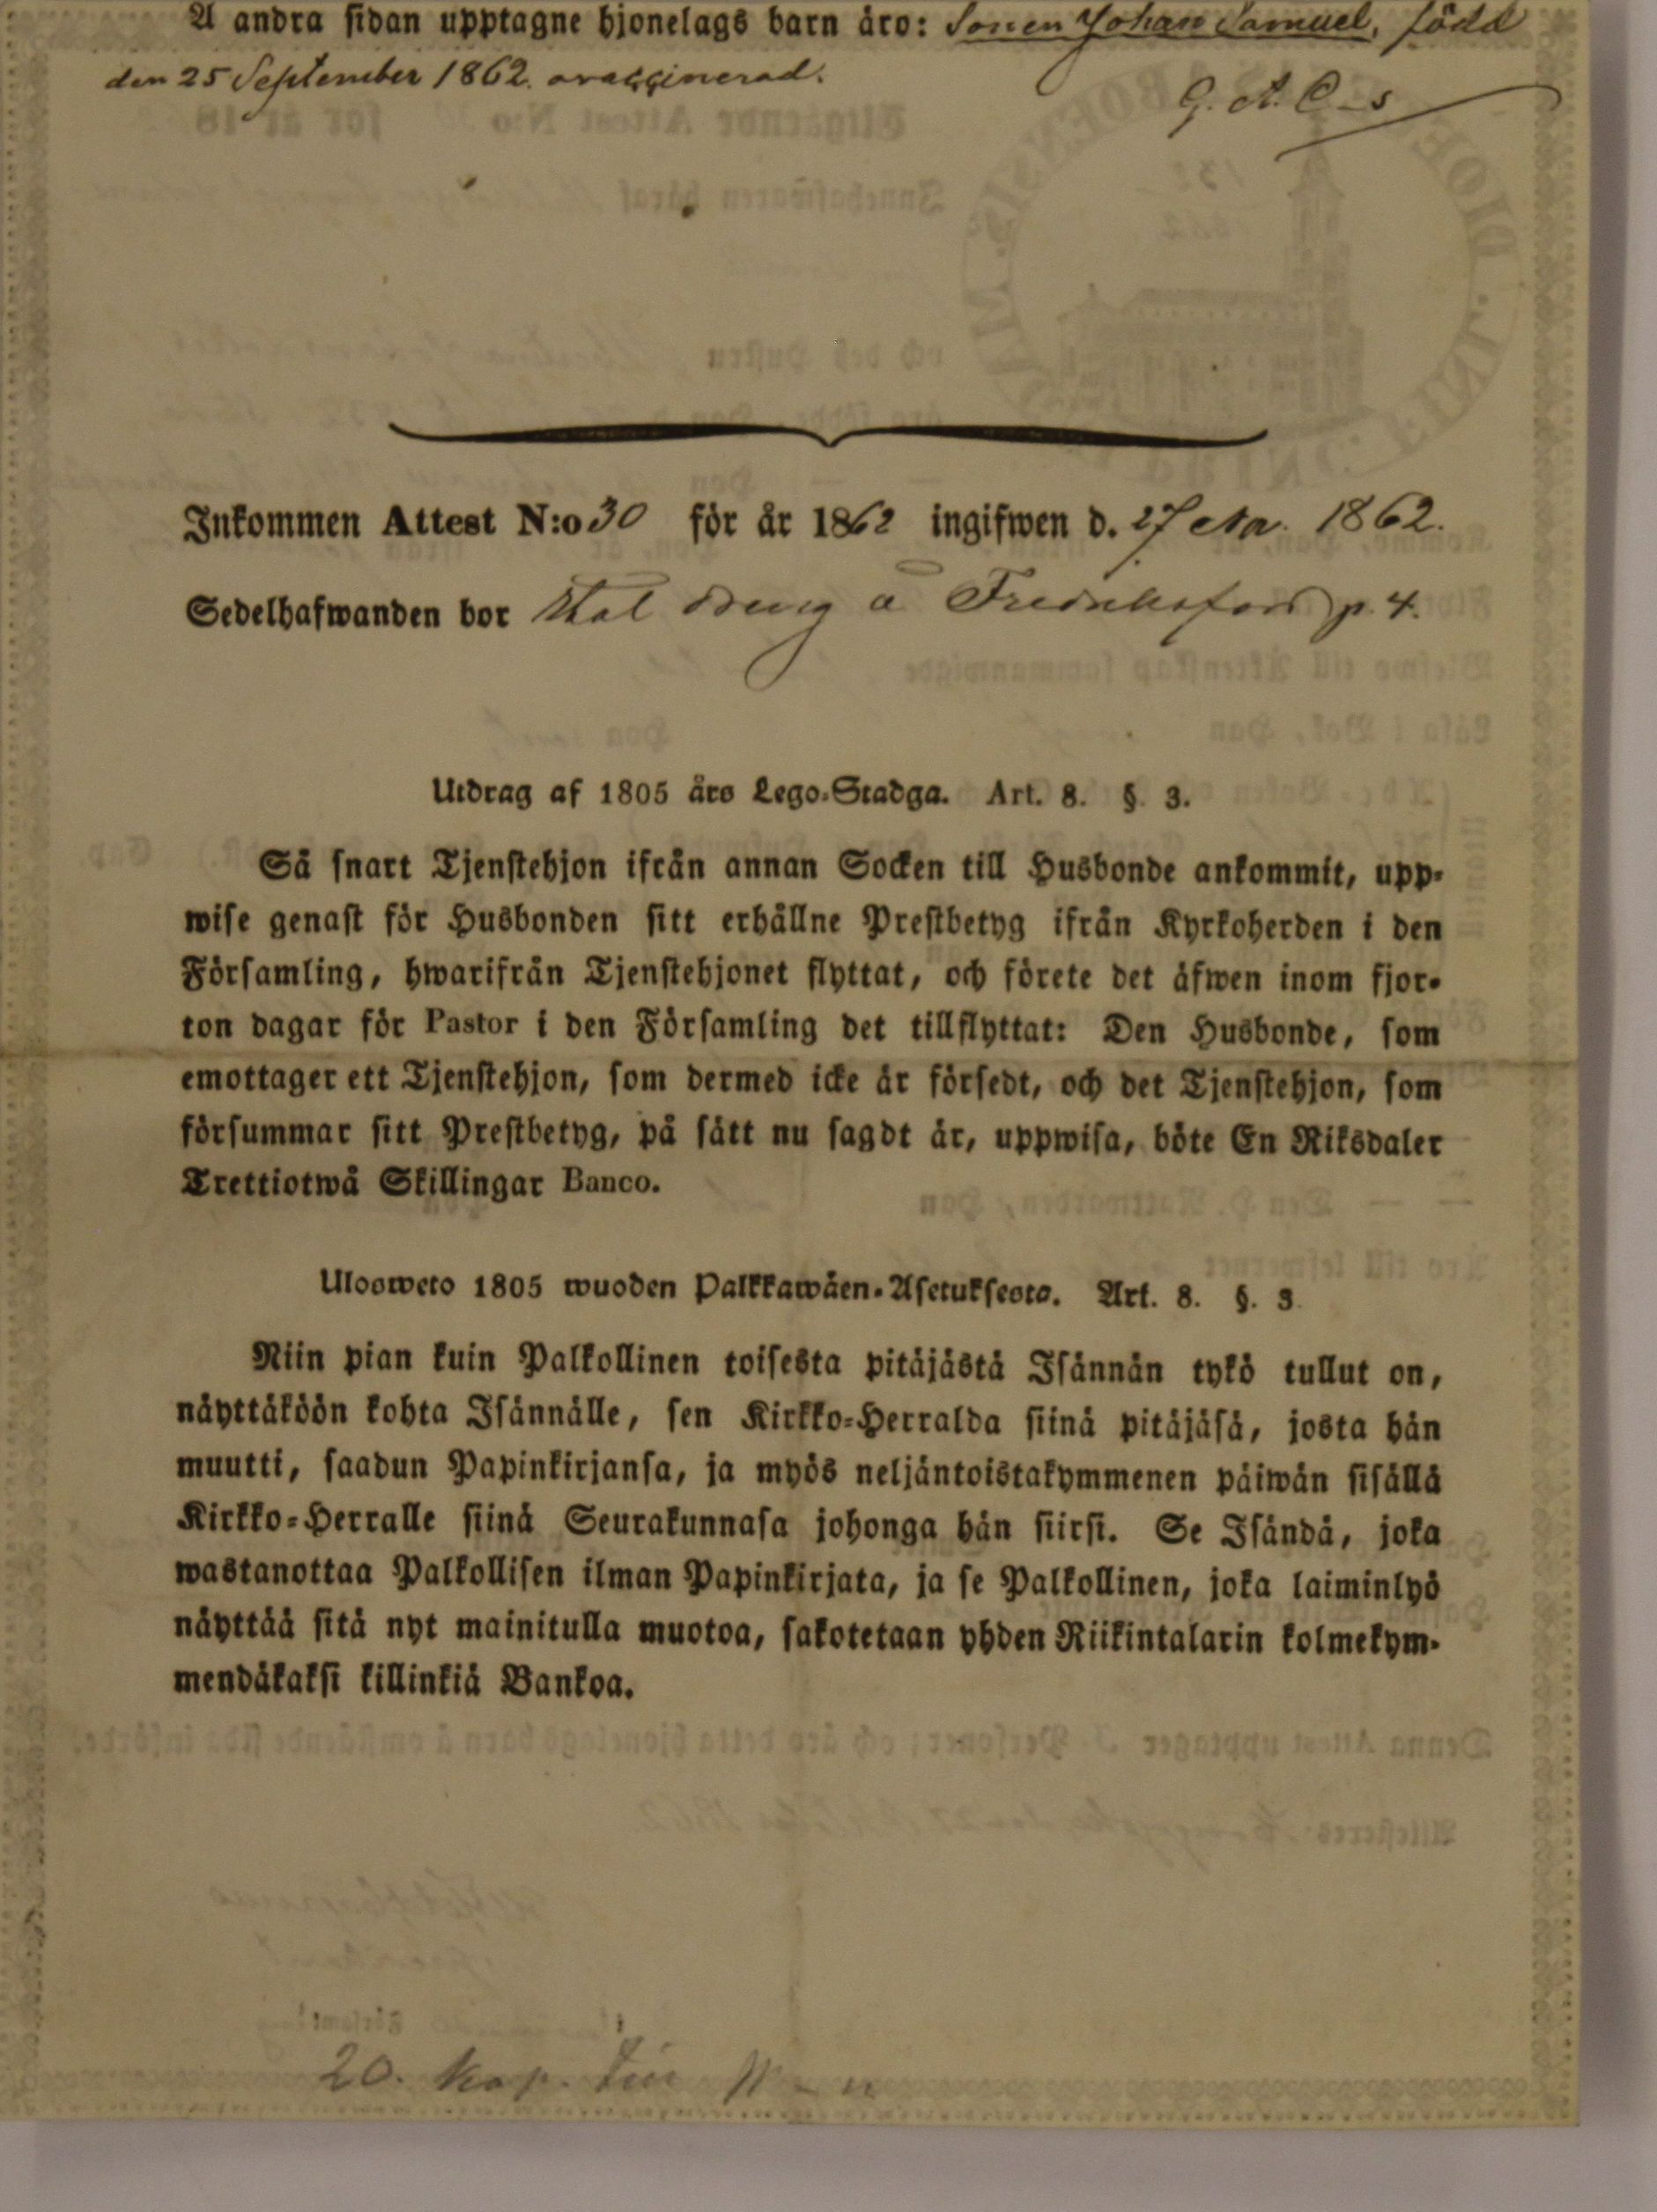 Å andra sidan upptagne hjonelags barn äro: Sonen Johan Samuel, född
den 25 September 1862. ovaccinerad.
G. A. C-s
Inkommen Attest N:o 30 för år 1862 ingifwen d. 27 1862.
Sedelhafwanden bor dräng å p. 4.
Utdrag af 1805 års Lego-Stadga. Art. 8. § 3.
Så snart Tjenstehjon ifrån annan Socken till Husbonde ankommit, upp-
wise genast för Husbonden sitt erhållne Prestbetyg ifrån Kyrkoherden i den
Församling, hwarifrån Tjenstehjonet flyttat, och förete det äfwen inom fjor-
ton dagar för Pastor i den Församling det tillflyttat: Den Husbonde, som
emottager ett Tjenstehjon, som dermed icke är försedt, och det Tjenstehjon, som
försummar sitt Prestbetyg, på sätt nu sagdt är, uppwisa, böte En Riksdaler
Trettiotwå Skillingar Banco.
Ulosweto 1805 wuoden Palkkawäen-Asetuksesta. Art. 8. §. 3.
Niin pian kuin Palkollinen toisesta pitäjästä Isännän tykö tullut on,
näyttäköön kohta Isännälle, sen Kirkko-Herralda siinä pitäjäsä, josta hän
muutti, saadun Papinkirjansa, ja myös neljäntoistakymmenen päiwän sisällä
Kirkko-Herralle siinä Seurakunnasa johonga hän siirsi. Se Isändä, joka
wastanottaa Palkollisen ilman Papinkirjata, ja se Palkollinen, joka laiminlyö
näyttää sitä nyt mainitulla muotoa, sakotetaan yhden Riikintalarin kolmekym-
mendäkaksi killinkiä Bankoa.
20. kop.